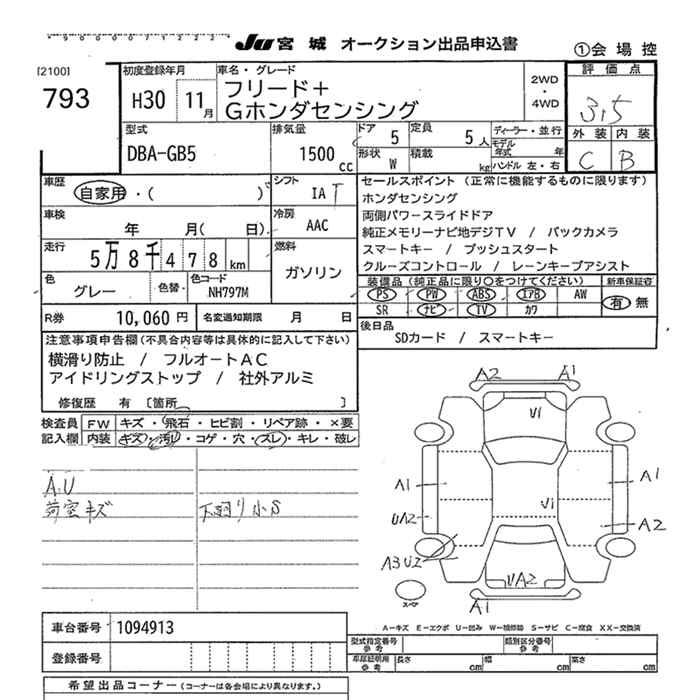 Ju 宮城 オークション出品申込書
①会場控
[2100]
793
初度登録年月
H30 11月
車名・グレード
フリード＋
Gホンダセンシング
2WD
・
4WD
評価点
3.5
外装 内装
C B
型式
DBA-GB5
排気量
1500 cc
ドア 5
定員 5人
形状 W
積載 kg
ディーラー・並行
モデル年式 年
ハンドル 左・右
車歴
自家用・( )
シフト
IAT
車検
年 月( 日)
冷房
AAC
走行
5万8千478 km
燃料
ガソリン
色
グレー
色替
色コード
NH797M
R券 10,060円
名変通知期限 月 日
セールスポイント (正常に機能するものに限ります)
ホンダセンシング
両側パワースライドドア
純正メモリーナビ地デジTV / バックカメラ
スマートキー / プッシュスタート
クルーズコントロール / レーンキープアシスト
装備品(純正品に限り○をつけてください)
新車保証書
PS PW ABS エアB AW
SR ナビ TV カワ
有・無
後日品
SDカード / スマートキー
注意事項申告欄(不具合内容等は具体的に記入して下さい)
横滑り防止 / フルオートAC
アイドリングストップ / 社外アルミ
修復歴 有 [箇所 ]
検査員記入欄
FW キズ・飛石・ヒビ割・リペア跡・×要
内装 キズ・汚れ・コゲ・穴・ズレ・キレ・破レ
A.U
荷室キズ
下廻り小S
A2 A1
U1
A1
A1
U1
UA2
A2
A3U2
UA2
A1
スペア
A－キズ E－エクボ U－凹み W－補修跡 S－サビ C－腐食 XX－交換済
車台番号 1094913
登録番号
型式指定番号 参考
類別区分番号 参考
車庫証明用 参考
長さ cm 幅 cm 高さ cm
希望出品コーナー (コーナーは各会場により異なります。)